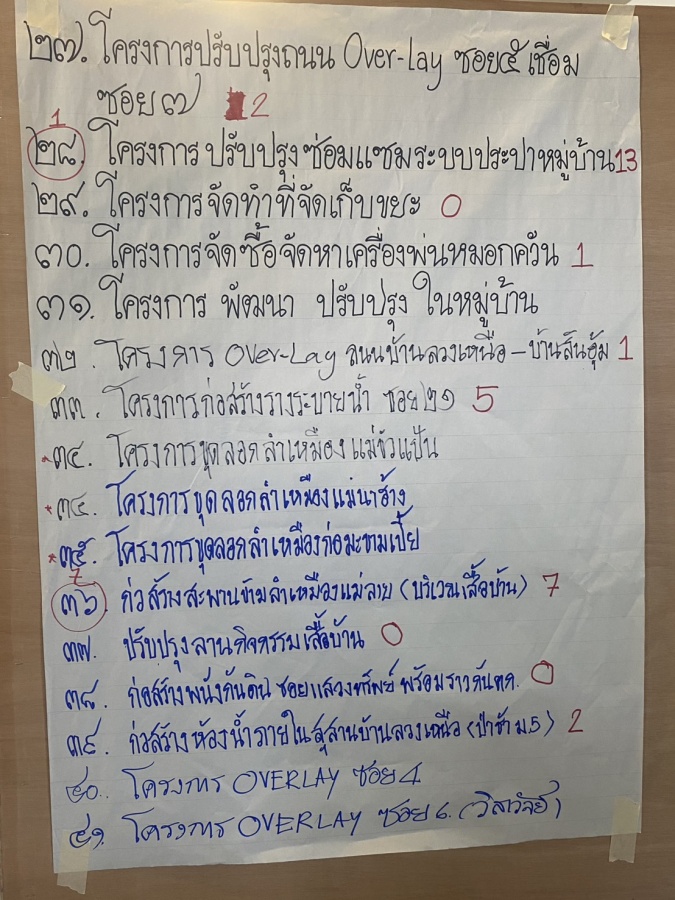 ๒๗. โครงการปรับปรุงถนน Over-lay ซอย๕ เชื่อม
ซอย ๗ 2
1
๒๘. โครงการ ปรับปรุง ซ่อมแซมระบบประปาหมู่บ้าน 13
๒๙. โครงการจัดทำที่จัดเก็บขยะ 0
๓๐. โครงการจัดซื้อจัดหาเครื่องพ่นหมอกควัน 1
๓๑. โครงการ พัฒนา ปรับปรุง ในหมู่บ้าน
๓๒. โครงการ Over-Lay ถนนบ้านลวงเหนือ - บ้านสันอุ้ม 1
๓๓. โครงการก่อสร้างรางระบายน้ำ ซอย ๒๑ 5
*๓๔. โครงการขุดลอกลำเหมือง
*๓๔. โครงการขุดลอกลำเหมืองแม่นาร้าง
*๓๕. โครงการขุดลอกลำเหมืองก่อมะขามเปี้ย
7
๓๖. ก่อสร้างสะพานข้ามลำเหมืองแม่ลาย (บริเวณเสื้อบ้าน) 7
๓๗. ปรับปรุงลานกิจกรรมเสื้อบ้าน 0
๓๘. ก่อสร้างพนังกันดิน ซอยแสวงทรัพย์ พร้อมราวกันตก. 0
๓๙. ก่อสร้างห้องน้ำภายในสุสานบ้านลวงเหนือ (ป่าช้า ม.5) 2
๔๐. โครงการ OVERLAY ซอย 4
๔๑. โครงการ OVERLAY ซอย ๖. (วิสาวัจย์)